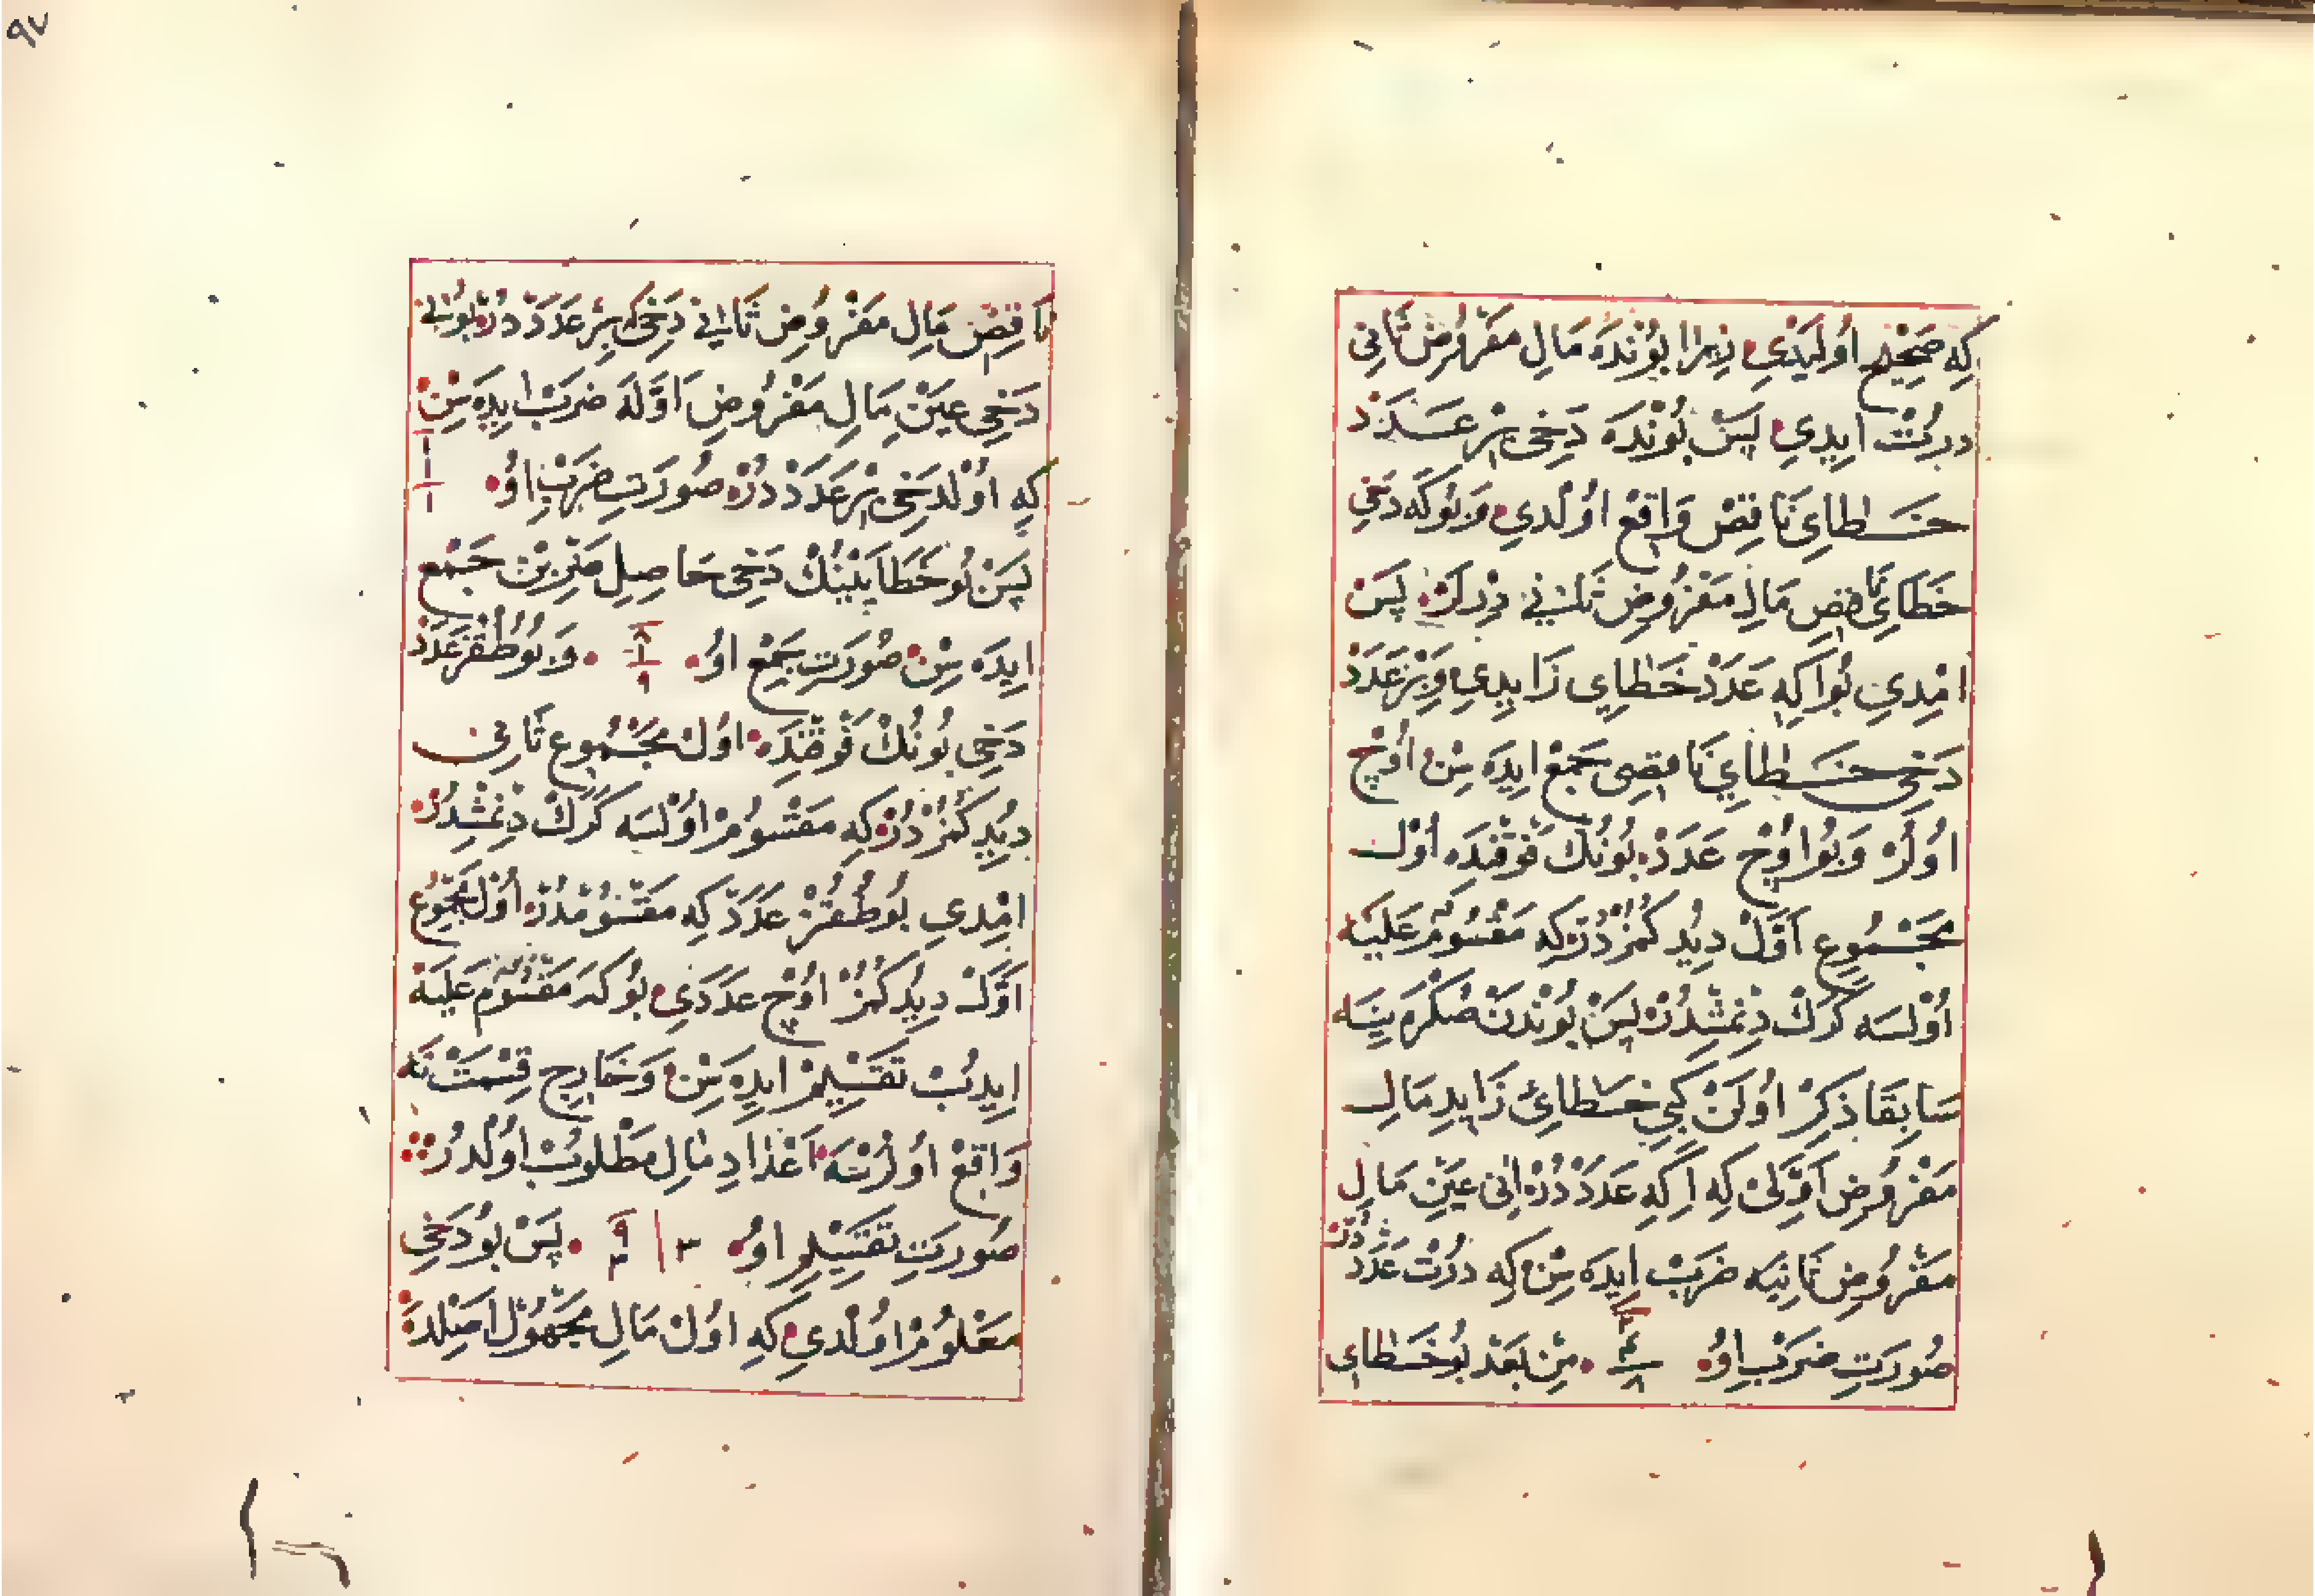 كِه صَحِيحْ اُولَيْدِي زِيرَا بُونْدَه مَالِ مَفْرُوضِ ثَانِى
دُرْتْ ايدِي پَسْ بُونْدَه دَخِى بِرْ عَدَدْ
خَطَايِ نَاقِصْ وَاقِعْ اُولْدِي وَبُوكَه دَخِي
خَطَايِ نَاقِصِ مَالِ مَفْرُوضِ ثَانِي دِرْلَرْ پَسْ
امْدِي بُو ايكِه عَدَدْ خَطَايِ زَايِدِي وَبِرْ عَدَدْ
دَخِى خَطَايِ نَاقِصِى جَمْعْ ايدَه سِنْ اُوچْ
اُولُرْ وَبُو اُوچْ عَدَدْ بُونُكْ فَوْقِنْدَه اُولْ
مَجْمُوعِ اَوَّلْ دِيدُكُمُزْدُرْ كِه مَقْسُومٌ عَلَيْه
اُولْسَه كَرَكْ دِنْمِشْدُرْ پَسْ بُونْدَنْ صُكْرَه يِنَه
سَابِقَا ذِكِرْ اُولَنْ ايكِى خَطَايِ زَايِدِ مَالِ
مَفْرُوضِ اَوَّلِى كِه ايكِه عَدَدْدُرْ انِى عَيْنِ مَالِ
مَفْرُوضِ ثَانِيَه ضَرَبْ ايدَه سِنْ كِه دُرْتْ عَدَدْدُرْ
صُورَتِ ضَرَبْ اُو ٢ ٤ ٨ مِنْ بَعْدْ بُو خَطَايِ
٩٧
نَاقِصِ مَالِ مَفْرُوضِ ثَانِي دَخِى كِه بِرْ عَدَدْدُرْ بُونِى
دَخِى عَيْنِ مَالِ مَفْرُوضِ اَوَّلَه ضَرَبْ ايدَه سِنْ
كِه اُولْ دَخِى بِرْ عَدَدْدُرْ صُورَتِ ضَرَبْ اُو ١ ١ ١
پَسْ بُو خَطَايَيْنُكْ دَخِى حَاصِلِ ضَرْبَيْنْ جَمْعْ
ايدَه سِنْ صُورَتِ جَمْعْ اُو ٨ ١ ٩ وَبُو طُقُزْ عَدَدْ
دَخِي بُونُكْ فَوْقِنْدَه اُولْ مَجْمُوعِ ثَانِى
دِيدُكُمُزْدُرْ كِه مَقْسُومْ اُولْسَه كَرَكْ دِنْمِشْدُرْ
امْدِي بُو طُقُزْ عَدَدْ كِه مَقْسُومْدُرْ اُولْ مَجْمُوعِ
اَوَّلْ دِيدُكُمُزْ اُوچْ عَدَدَى بُوكَه مَقْسُومٌ عَلَيْه
ايدُبْ تَقْسِيمْ ايدَه سِنْ وَخَارِجِ قِسْمَتْ نَه
وَاقِعْ اُولُرْسَه اَعْدَادِ مَالِ مَطْلُوبْ اُولْدُرْ
صُورَتِ تَقْسِيمْ اُو ٣ | ٩ ٣ پَسْ بُو دَخِى
مَعْلُومْ اُولْدِي كِه اُولْ مَالِ مَجْهُولْ اَصِلْدَه